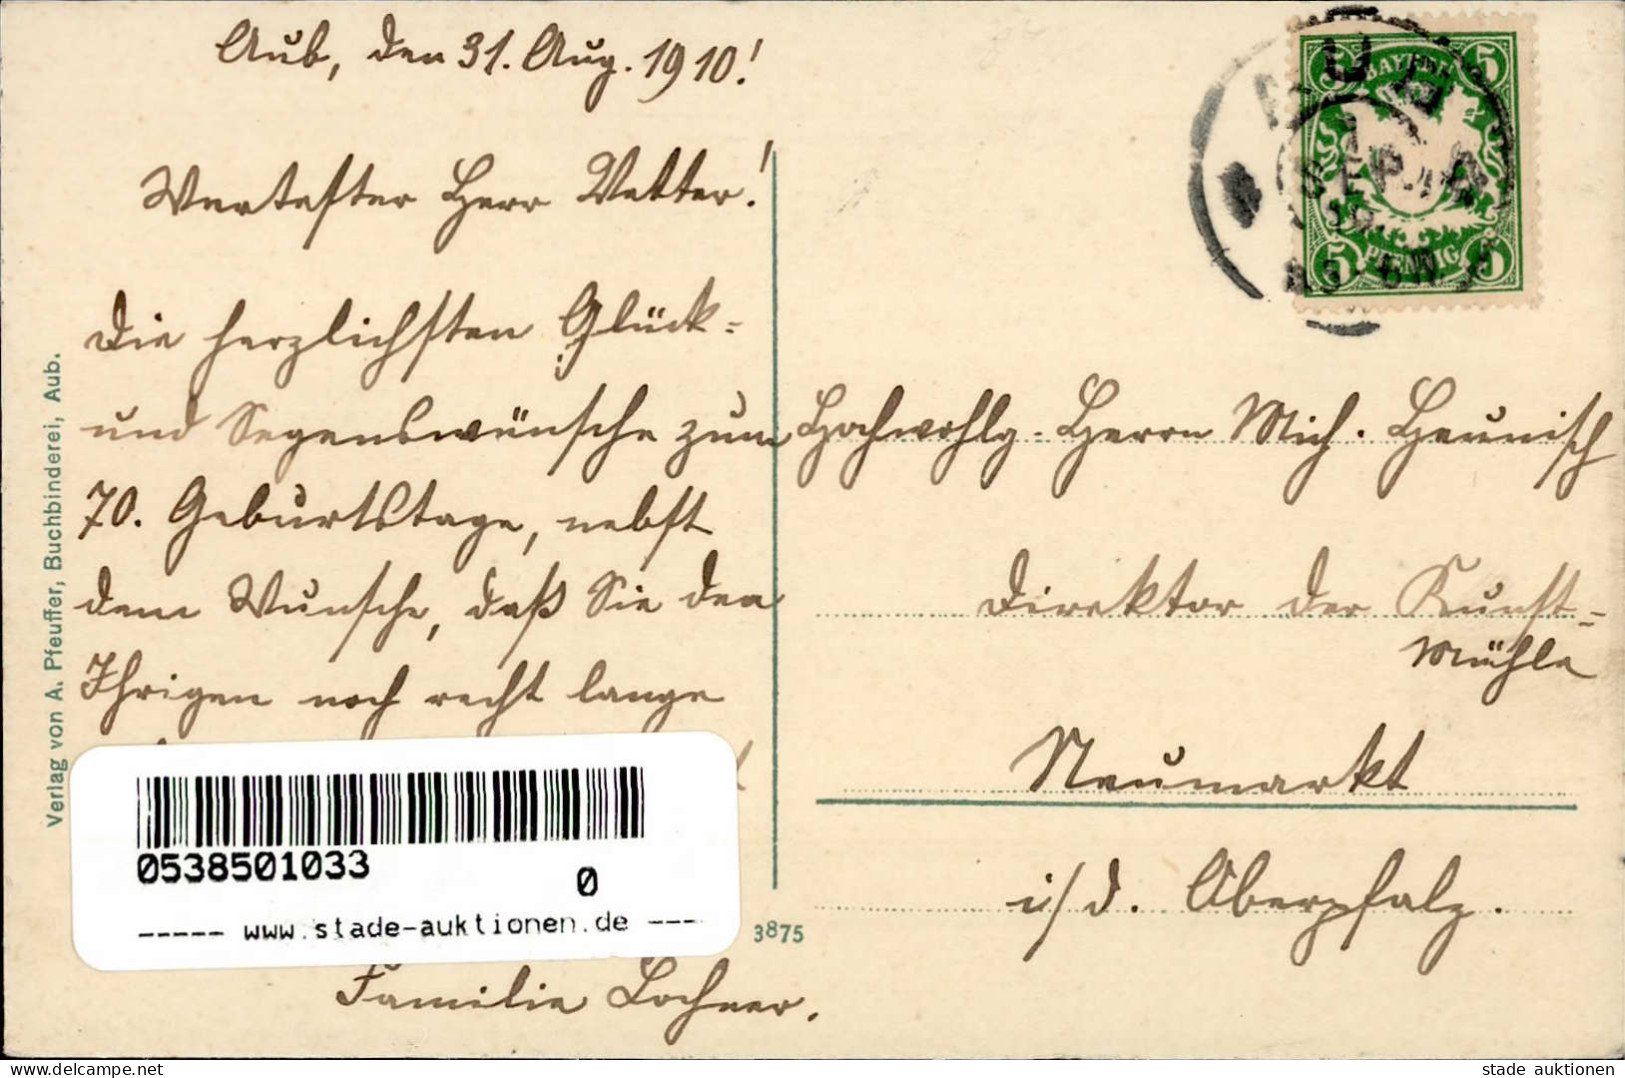 Aub, den 31. Aug. 1910!
Wertester Herr Vetter!
Die herzlichsten Glück-
und Segenswünsche zum
70. Geburtstage, nebst
dem Wunsche, daß Sie den
Ihrigen noch recht lange
Familie Lochner.
Verlag von A. Pfeuffer, Buchbinderei, Aub.
0538501033
0
----- www.stade-auktionen.de ---
3875
BAYERN
5 5
5 PFENNIG 5
AUB
Hochwohlg. Herrn Mich. Heunisch
Direktor der Kunst-
Mühle
Neumarkt
i/d. Oberpfalz.
www.delcampe.net
stade auktionen